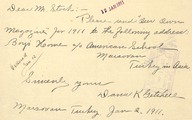 15 JAN 1911
Dear Mr. Stock:-
Please send Our Own
Magazine for 1911 to the following address.
Boys Home c/o American School
Marsovan
Turkey in Asia
Sincerely yours
Dana K Getchell
Marsovan Turkey Jan 2, 1911.